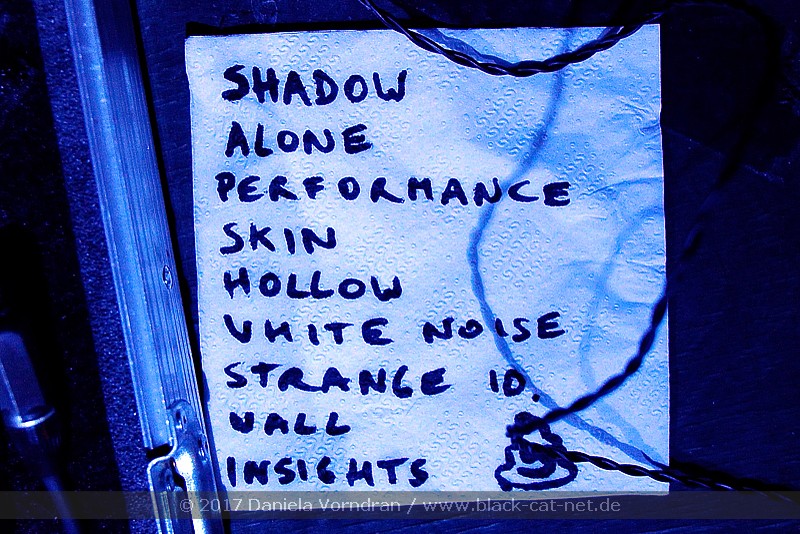 SHADOW
ALONE
PERFORMANCE
SKIN
HOLLOW
WHITE NOISE
STRANGE ID.
WALL
INSIGHTS
© 2017 Daniela Vorndran / www.black-cat-net.de